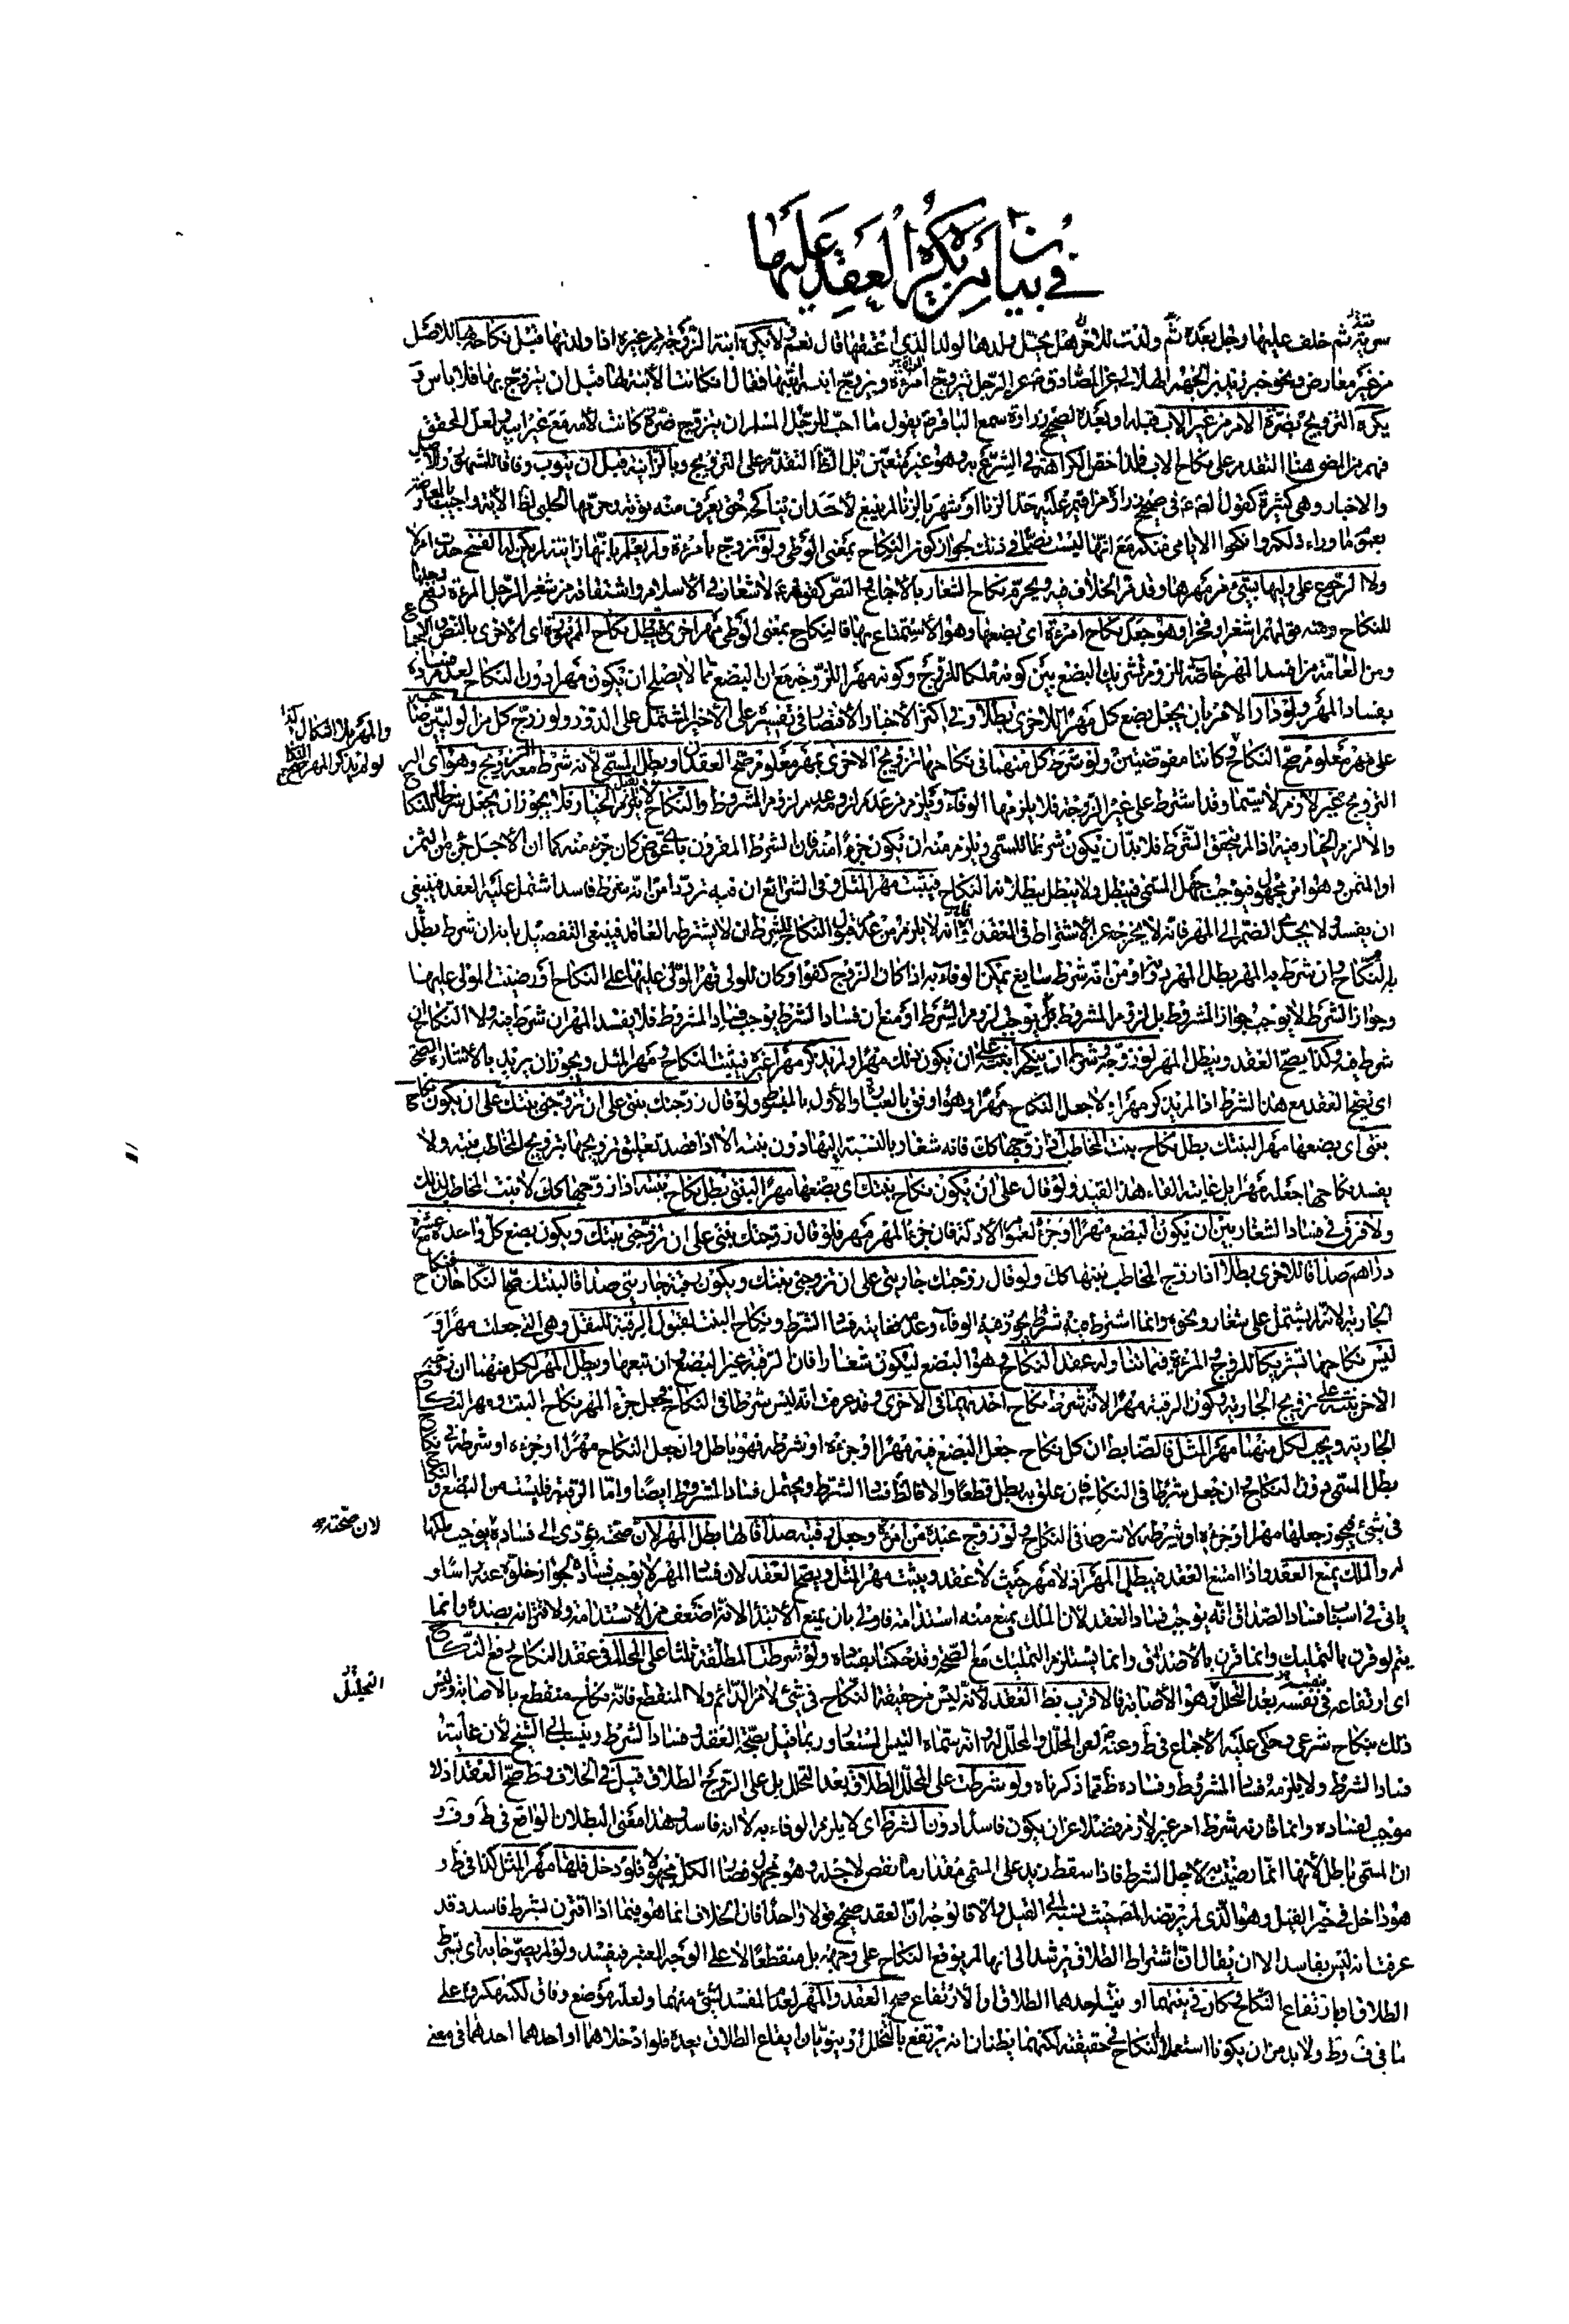 في بيان من يكره العقد عليها
سريته ثم خلف عليها رجل بعده ثم ولدت للاخر هل يحل ولدها لولد الذي اعتقها قال نعم ولا يكره ابنة الزوجة من غيره اذا ولدتها قبل نكاحه بها للاصل
من غير معارض ونحو خبر زيد بن الجهم الهلالي عن الصادق ع عن الرجل يتزوج امرءة ويزوج ابنه ابنتها فقال ان كانت الابنة لها قبل ان يتزوج بها فلا باس و
يكره التزويج بضرة الام من غير الاب قبله او بعده لصحيح زرارة سمع الباقر ع يقول ما احب للرجل المسلم ان يتزوج ضرة كانت لامه مع غير ابيه ولعل المحقق
فهم من النصوص هنا التقدم على نكاح الاب فلذا خص الكراهة في الشرايع به وهو غير متعين بل الظ التقدم على التزويج وبالزانية قبل ان يتوب وفاقا للمشهور للاصل
والاخبار وهي كثيرة كقول الص ع في صحيح زرارة من اقيم عليه حد الزنا او شهر بالزنا لم ينبغ لاحد ان يناكحه حتى يعرف منه توبة وحرمها الحلبي لظ الاية واجيب بالمعارضة
بعموم ما وراء ذلكم وانكحوا الايامى منكم مع انها ليست نصا في ذلك لجواز كون النكاح بمعنى الوطي ولو تزوج بامرءة ولم يعلم بانها زانية لم يكن له الفسخ حدت ام لا
ولا الرجوع على وليها بشئ من مهرها وقد مر الخلاف فيه ويحرم نكاح الشغار بالاجماع والنص كقوله ع لا شغار في الاسلام واشتقاقه من شغر الرجل المرءة رفع رجلها
للنكاح ومنه قولهم اشغرا وفخرا وهو جعل نكاح امرءة اى بضعها وهو الاستمتاع بها فالنكاح بمعنى الوطي مهر اخرى فيبطل نكاح الممهورة اى الاخرى بالنص والاجماع
ومن العامة من افسد المهر خاصة للزوم تشريك البضع بين كونه ملكا للزوج وكونه مهرا للزوجة مع ان البضع مما لا يصلح ان يكون مهرا دون النكاح لعدم فساده
بفساد المهر ولو دار الامر بان يجعل بضع كل مهرا للاخرى بطلا وفي اكثر الاخبار الاقتصار في تفسيره على الاخير المشتمل على الدور ولو زوج كل من الوليين صاحبه
على مهر معلوم صح النكاح
والمهر بلا اشكال كذا
لو لم يذكر المهر صح النكاح
وكانتا مفوضتين ولو شرط كل منهما في نكاحها تزويج الاخرى بمهر معلوم صح العقدان وبطل المسمى لانه شرط معه التزويج وهو اى
التزويج غير لازم لا سيما وقد اشترط على غير الزوجة فلا يلزمها الوفاء ويلزم من عدم لزومه عدم لزوم المشروط والنكاح لا يقبل الخيار فلا يجوز ان يجعل شرطا للنكاح
والا لزم الخيار فيه اذا لم يتحقق الشرط فلا بد ان يكون شرطا للمسمى ويلزم منه ان يكون جزءا منه فان الشرط المقرون باى عوض كان جزء منه كما ان الاجل جزء من الثمن
او المثمن وهو امر مجهول فيوجب جهل المسمى فيبطل ولا يبطل ببطلانه النكاح فيثبت مهر المثل وفي الشرائع ان فيه ترددا من انه شرط فاسد اشتمل عليه العقد فينبغي
ان يفسد ولا يجدى الضم الى المهر فانه لا يخرجه عن الاشتراط في العقد ومن انه لا يلزم من عدم قبول النكاح للشرط ان لا يشترطه العاقد فينبغي التفصيل بانه ان شرط بطل
به النكاح وان شرط به المهر بطل المهر به او من انه شرط سايغ يمكن الوفاء به اذا كان الزوج كفوا وكان للولى قهر المولى عليها على النكاح او رضيت المولى عليها
وجواز الشرط لا يوجب جواز المشروط بل لزوم المشروط بل يوجب لزوم الشرط او منع ان فساد الشرط يوجب فساد المشروط فلا يفسد المهر ان شرط فيه ولا النكاح ان
شرط فيه وكذا يصح العقد ويبطل المهر لو زوجه وشرط ان ينكحه ابنته على ان يكون ذلك مهرا ولم يذكر مهرا غيره فيثبت النكاح ومهر المثل ويجوز ان يريد بالاشارة الصحة
اى يصح العقد مع هذا الشرط اذا لم يذكر مهرا ولا جعل النكاح مهرا وهو اوفق بالعبارة والاول بالمبسوط ولو قال زوجتك بنتي على ان تزوجني بنتك على ان يكون نكاح
بنتي اى بضعها مهرا لبنتك بطل نكاح بنت المخاطب اذا زوجها كك فانه شغار بالنسبة اليها دون بنته الا اذا قصد تعليق تزويجها بتزويج المخاطب منه ولا
يفسد نكاحها جعله مهرا بل غايته الغاء هذا القيد ولو قال على ان يكون نكاح بنتك اى بضعها مهرا لبنتي بطل نكاح بنته اذا زوجها كك لا بنت المخاطب لذلك
ولا فرق في فساد الشغار بين ان يكون البضع مهرا او جزءه لعموم الادلة فان جزء المهر مهر فلو قال زوجتك بنتي على ان تزوجني بنتك ويكون بضع كل واحدة مع عشرة
دراهم صداقا للاخرى بطلا اذا زوج المخاطب بنتها كك ولو قال زوجتك جاريتي على ان تزوجني بنتك ويكون رقبة جاريتي صداقا لبنتك صح النكاحان فنكاح
الجارية لانه لم يشتمل على شغار ونحوه وانما اشترط فيه شرط يجوز فيه الوفاء وعدمه غايته فساد الشرط ونكاح البنت لقبول الرقبة للنقل وهي التي جعلت مهرا و
ليس نكاحها تشريكا للزوج المرءة فيما تناوله عقد النكاح وهو البضع ليكون شغارا فان الرقبة غير البضع وان تبعها ويبطل المهر لكل منهما ان زوجه
الاخر بنته على تزويج الجارية وكون الرقبة مهرا لانه شرط نكاح احديهما في الاخرى وقد عرفت انه ليس شرطا في النكاح فيجعل جزء المهر نكاح البنت ومهر النكاح
الجارية ويجب لكل منهما مهر المثل فالضابط ان كل نكاح جعل البضع فيه مهرا او جزءه او شرطه فهو باطل وان جعل النكاح مهرا او جزءه او شرطه في نكاح
بطل المسمى دون النكاح وان جعل شرطا في النكاح فان علق به بطل قطعا والا فالظ فساد الشرط ويحتمل فساد المشروط ايضا واما الرقبة فليست من البضع والنكاح
في شئ فيجوز جعلها مهرا او جزءه او شرطه لا شرطا في النكاح ولو زوج عبده من امرءة وجعل رقبته صداقا لها بطل المهر لان صحته يؤدى الى فساده
لان صحته
يوجب ملكها
له والملك يمنع العقد واذا امتنع العقد فيبطل المهر اذ لا مهر حيث لا عقد ويثبت مهر المثل ويصح العقد لان فساد المهر لا يوجب فساده لجواز خلوه عنه راسا و
ياتي في اسباب فساد الصداق انه يوجب فساد العقد لان الملك يمنع منه استدامة فاولى بان يمنع الابتداء لانه اضعف من الاستدامة ولاقترانه بضده وانما
يتم لو قرن بالتمليك وانما قرن بالاصداق وانما يستلزم التمليك مع الصحة وقد حكمنا بفساده ولو شرطت المطلقة ثلثا على المحلل في عقد النكاح رفع النكاح
اى ارتفاعه في نفسه بعد التحليل
التحليل
وهو الاصابة فالاقرب بط العقد لانه ليس من حقيقة النكاح في شئ لا من الدائم ولا المنقطع فانه نكاح منقطع بالاصابة وليس
ذلك بنكاح شرعي وحكى عليه الاجماع في ط وعنه ص لعن المحلل والمحلل له وانه سماه التيس المستعار وربما قيل بصحة العقد وفساد الشرط وينسب الى الشيخ لان غايته
فساد الشرط ولا يلزمه فساد المشروط وفساده ظ مما ذكرناه ولو شرطت على المحلل الطلاق بعد التحلل بل على الزوج الطلاق قيل في الخلاف وط صح العقد اذ لا
موجب لفساده وانما قارنه شرط امر غير لازم فضلا عن ان يكون فاسدا دون الشرط اى لا يلزم الوفاء به لا انه فاسد وهذا معنى البطلان الواقع في ط وف و
ان المسمى باطل لانها انما رضيت به لاجل الشرط فاذا سقط زيد على المسمى مقدار ما نقص لاجله وهو مجهول فصار الكل مجهولا فلو دخل فلها مهر المثل كذا في ط و
هو داخل في خبر القيل وهو الذى لم يرتضه المصـ حيث نسبه الى القيل والا فالوجه ان العقد صحيح قولا واحدا فان الخلاف انما هو فيما اذا اقترن بشرط فاسد وقد
عرفت انه ليس بفاسد الا ان يقال ان اشتراط الطلاق يرشد الى انها لم يوقع النكاح على وجهه بل منقطعا لا على الوجه المعتبر فيفسد ولو لم يصرحا به اى بشرط
الطلاق او بارتفاع النكاح وكان في نيتهما او نية احدهما الطلاق او الارتفاع صح العقد والمهر لعدم المفسد لشئ منهما ولعله موضع وفاق لكنه مكروه على
ما في ف وط ولا بد من ان يكونا استعملا النكاح في حقيقته لكنهما يظنان انه يرتفع بالتحلل او ينويان ايقاع الطلاق بعده فلو ادخلاهما او احدهما احدهما في معنى